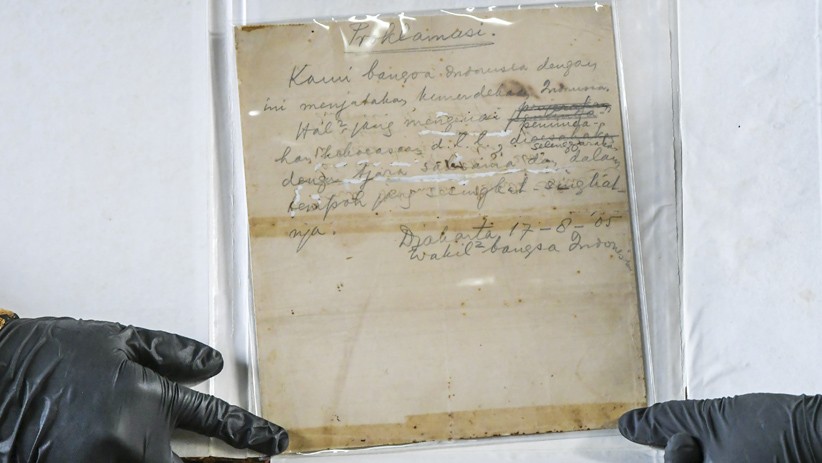 Proklamasi.
Kami bangsa Indonesia dengan
ini menjatakan kemerdekaan Indonesia.
Hal², jang mengenai
peminda-
han kekoeasaan, d.l.l.,
diselenggarakan
dengan tjara saksama dan dalam
tempoh jang sesingkat-singkat-
nja.
Djakarta, 17-8-'05
Wakil² bangsa Indonesia